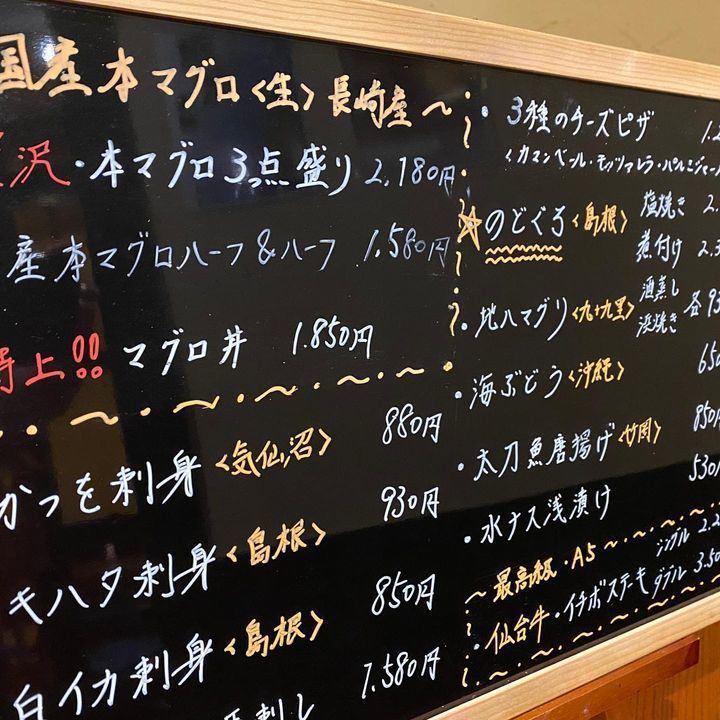 国産本マグロ〈生〉長崎産〜
沢・本マグロ3点盛り 2,180円
産本マグロハーフ&ハーフ 1,580円
特上!! マグロ丼 1,850円
かつを刺身〈気仙沼〉 880円
キハタ刺身〈島根〉 930円
白イカ刺身〈島根〉 850円
刺し 1,580円
・3種のチーズピザ
〈カマンベール・モッツァレラ・パルミジャーノ
☆のどぐろ〈島根〉 塩焼き
煮付け
・地ハマグリ〈九十九里〉 酒蒸し
浜焼き 各93
・海ぶどう〈沖縄〉 650
・太刀魚唐揚げ〈竹岡〉 850円
・水ナス浅漬け 530円
〜最高級・A5〜
・仙台牛・イチボステーキ シングル
ダブル 3,50